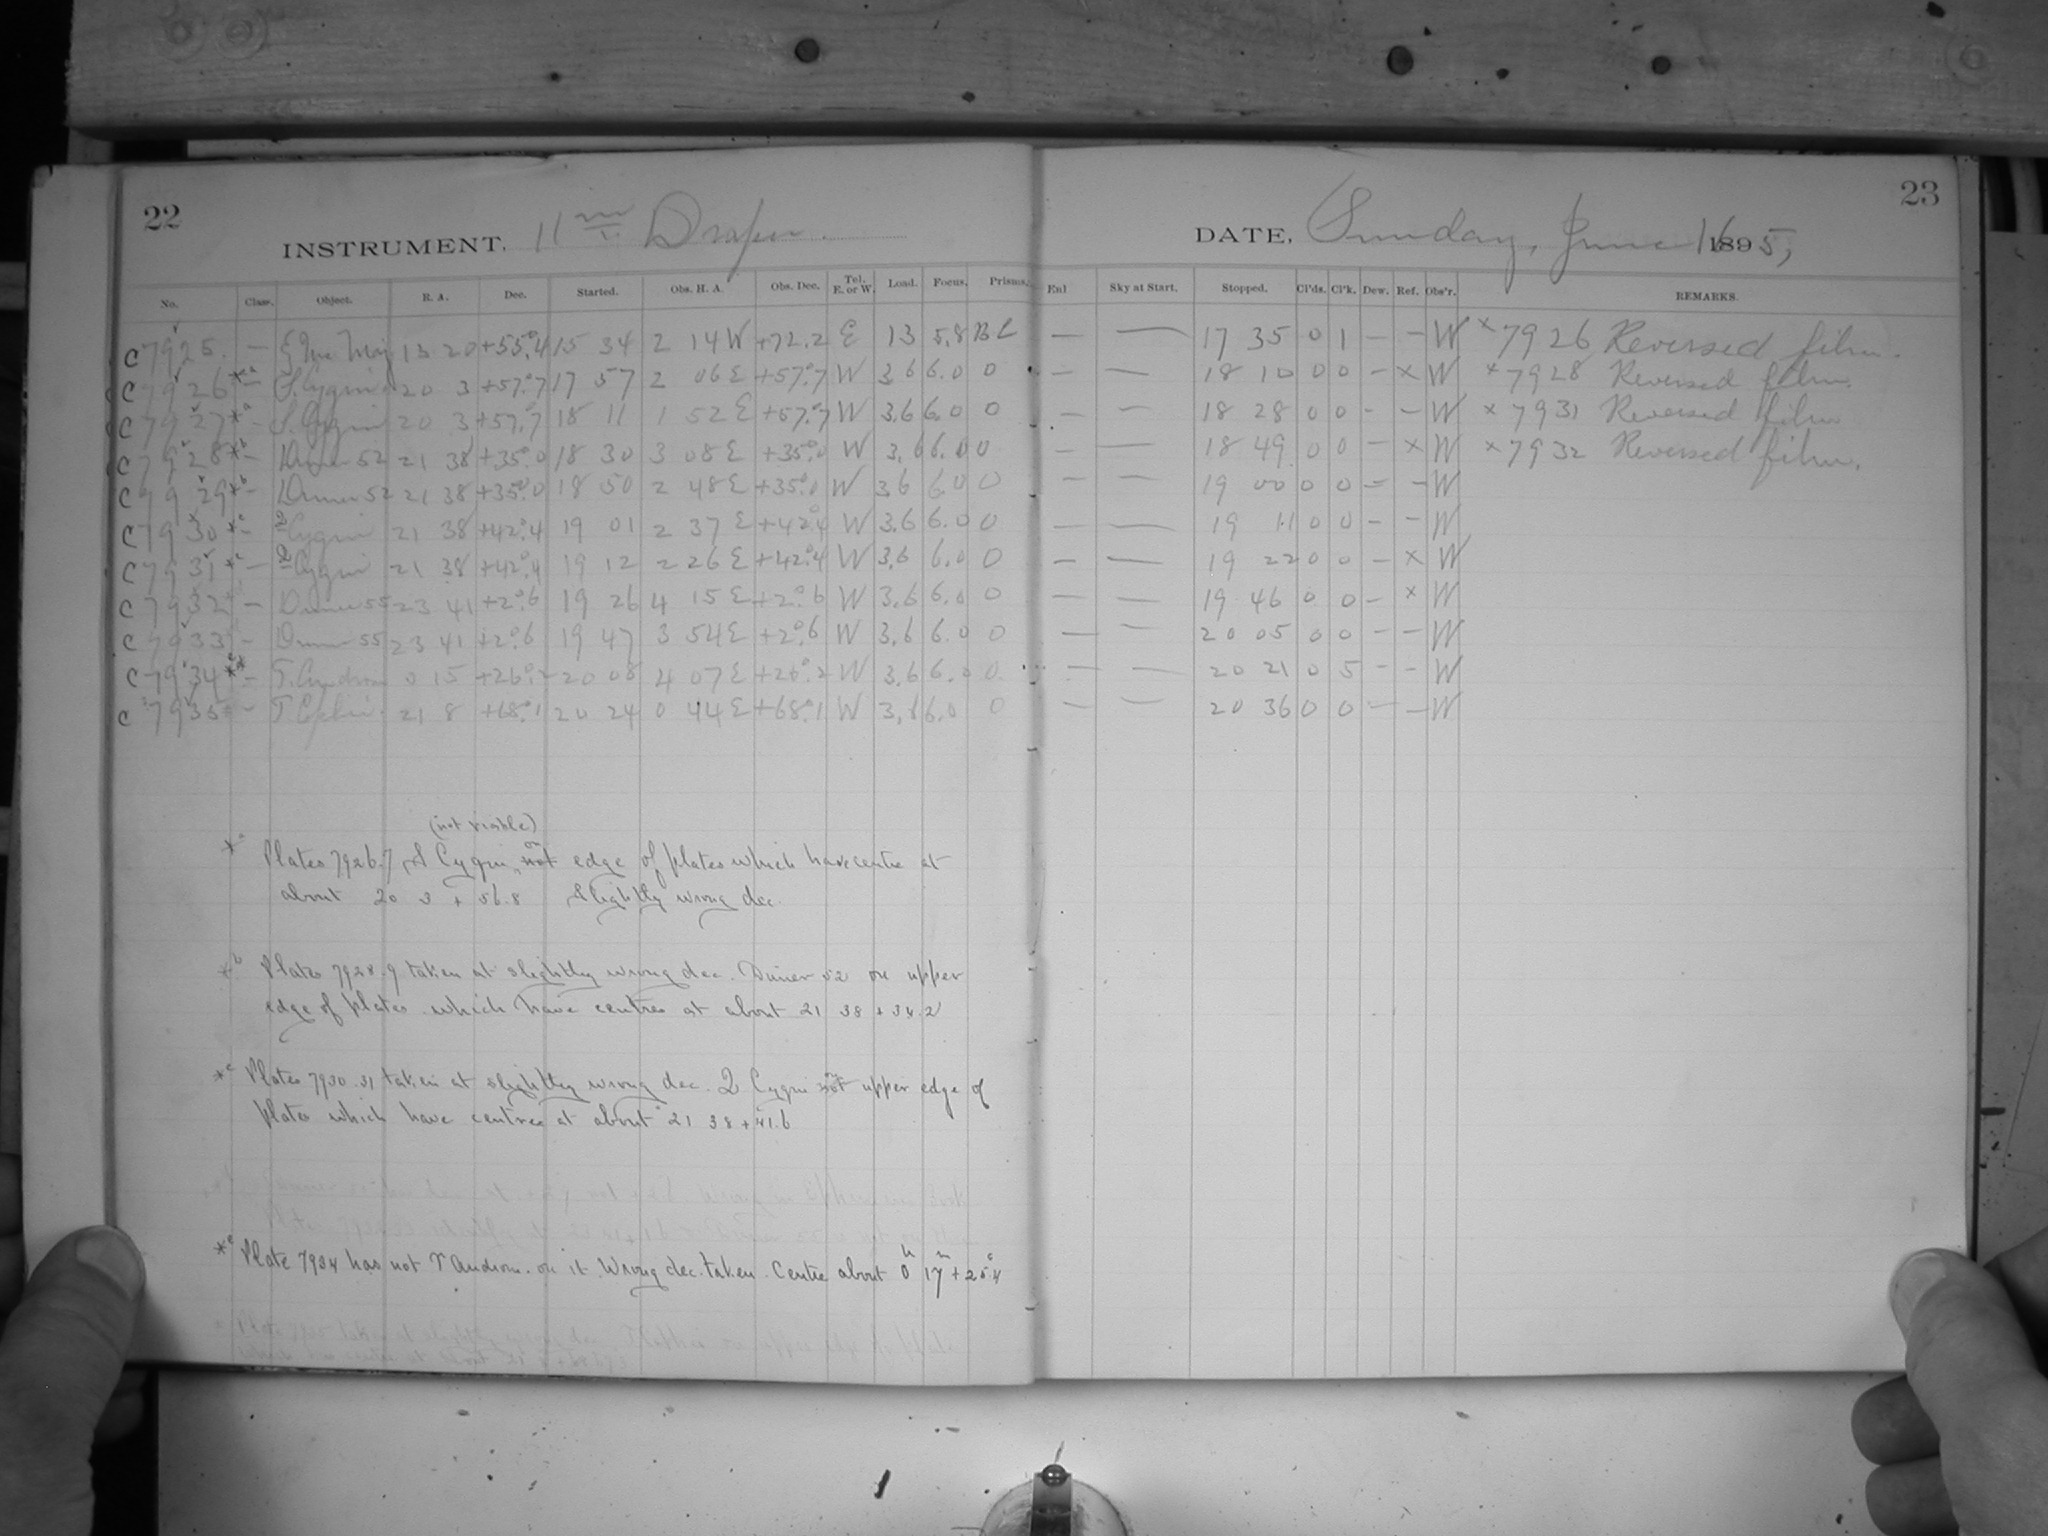 22
INSTRUMENT, 11 in. Draper
No. Class. Object. R. A. Dec. Started. Obs. H. A. Obs. Dec. Tel. E. or W. Load. Focus. Prisms.
C 7925 — 13 20 +55.°4 15 34 2 14 W +72.2 E 13 5.8
C 7926 *a — S. Cygni 20 3 +57.°7 17 57 2 06 E +57.°7 W 3.6 6.0 0
C 7927 *a — S. Cygni 20 3 +57.°7 18 11 1 52 E +57.°7 W 3.6 6.0 0
C 7928 *b — Duner 52 21 38 +35.°0 18 30 3 08 E +35.°0 W 3.6 6.0 0
C 7929 *b — Duner 52 21 38 +35.°0 18 50 2 48 E +35.°0 W 3.6 6.0 0
C 7930 *c — Cygni 21 38 +42.°4 19 01 2 37 E +42.°4 W 3.6 6.0 0
C 7931 *c — Cygni 21 38 +42.°4 19 12 2 26 E +42.°4 W 3.6 6.0 0
C 7932 — Duner 55 23 41 +2.°6 19 26 4 15 E +2.°6 W 3.6 6.0 0
C 7933 — Duner 55 23 41 +2.°6 19 47 3 54 E +2.°6 W 3.6 6.0 0
C 7934 *e — T. Androm 0 15 +26.°2 20 08 4 07 E +26.°2 W 3.6 6.0 0
C 7935 — T Cephei 21 8 +68.°1 20 24 0 44 E +68.°1 W 3.6 6.0 0
(not visible)
*a Plates 7926.7, S Cygni, on not edge of plates which have centre at
about 20 3 + 56.8 Slightly wrong dec.
*b Plates 7928.9 taken at slightly wrong dec. Duner 52 on upper
edge of plates which have centres at about 21 38 + 34.2
*c Plates 7930.31 taken at slightly wrong dec. Q Cygni on not upper edge of
plates which have centres at about 21 38 + 41.6
*e Plate 7934 has not T Androm. on it. Wrong dec. taken. Centre about 0h 17m + 25.°4
23
DATE, Sunday, June 16 1895,
Enl Sky at Start. Stopped. Cl'ds. Cl'k. Dew. Ref. Obs'r. REMARKS.
— — 17 35 0 1 — — W × 7926 Reversed film.
— — 18 10 0 0 — × W × 7928 Reversed film.
— — 18 28 0 0 — — W × 7931 Reversed film
— — 18 49 0 0 — × W × 7932 Reversed film.
— — 19 00 0 0 — — W
— — 19 11 0 0 — — W
— — 19 22 0 0 — × W
— — 19 46 0 0 — × W
— — 20 05 0 0 — — W
— — 20 21 0 5 — — W
— — 20 36 0 0 — — W